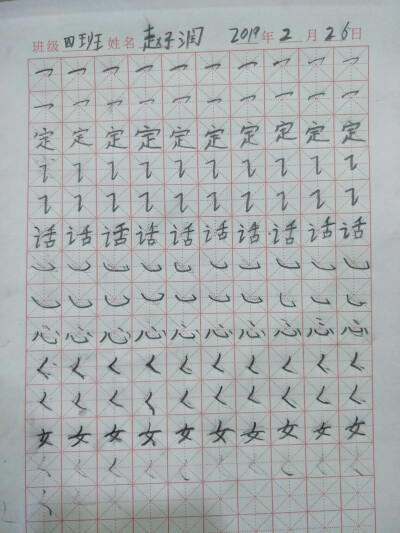 班级 四班 姓名 赵子润 2019年2月26日
乛 乛 乛 乛 乛 乛 乛 乛 乛 乛
乛 乛 乛 乛 乛 乛 乛 乛 乛 乛
定 定 定 定 定 定 定 定 定 定
㇊ ㇊ ㇊ ㇊ ㇊ ㇊ ㇊ ㇊ ㇊ ㇊
㇊ ㇊ ㇊ ㇊ ㇊ ㇊ ㇊ ㇊ ㇊ ㇊
话 话 话 话 话 话 话 话 话 话
㇃ ㇃ ㇃ ㇃ ㇃ ㇃ ㇃ ㇃ ㇃ ㇃
㇃ ㇃ ㇃ ㇃ ㇃ ㇃ ㇃ ㇃ ㇃ ㇃
心 心 心 心 心 心 心 心 心 心
㇛ ㇛ ㇛ ㇛ ㇛ ㇛ ㇛ ㇛ ㇛ ㇛
㇛ ㇛ ㇛ ㇛ ㇛ ㇛ ㇛ ㇛ ㇛ ㇛
女 女 女 女 女 女 女 女 女 女